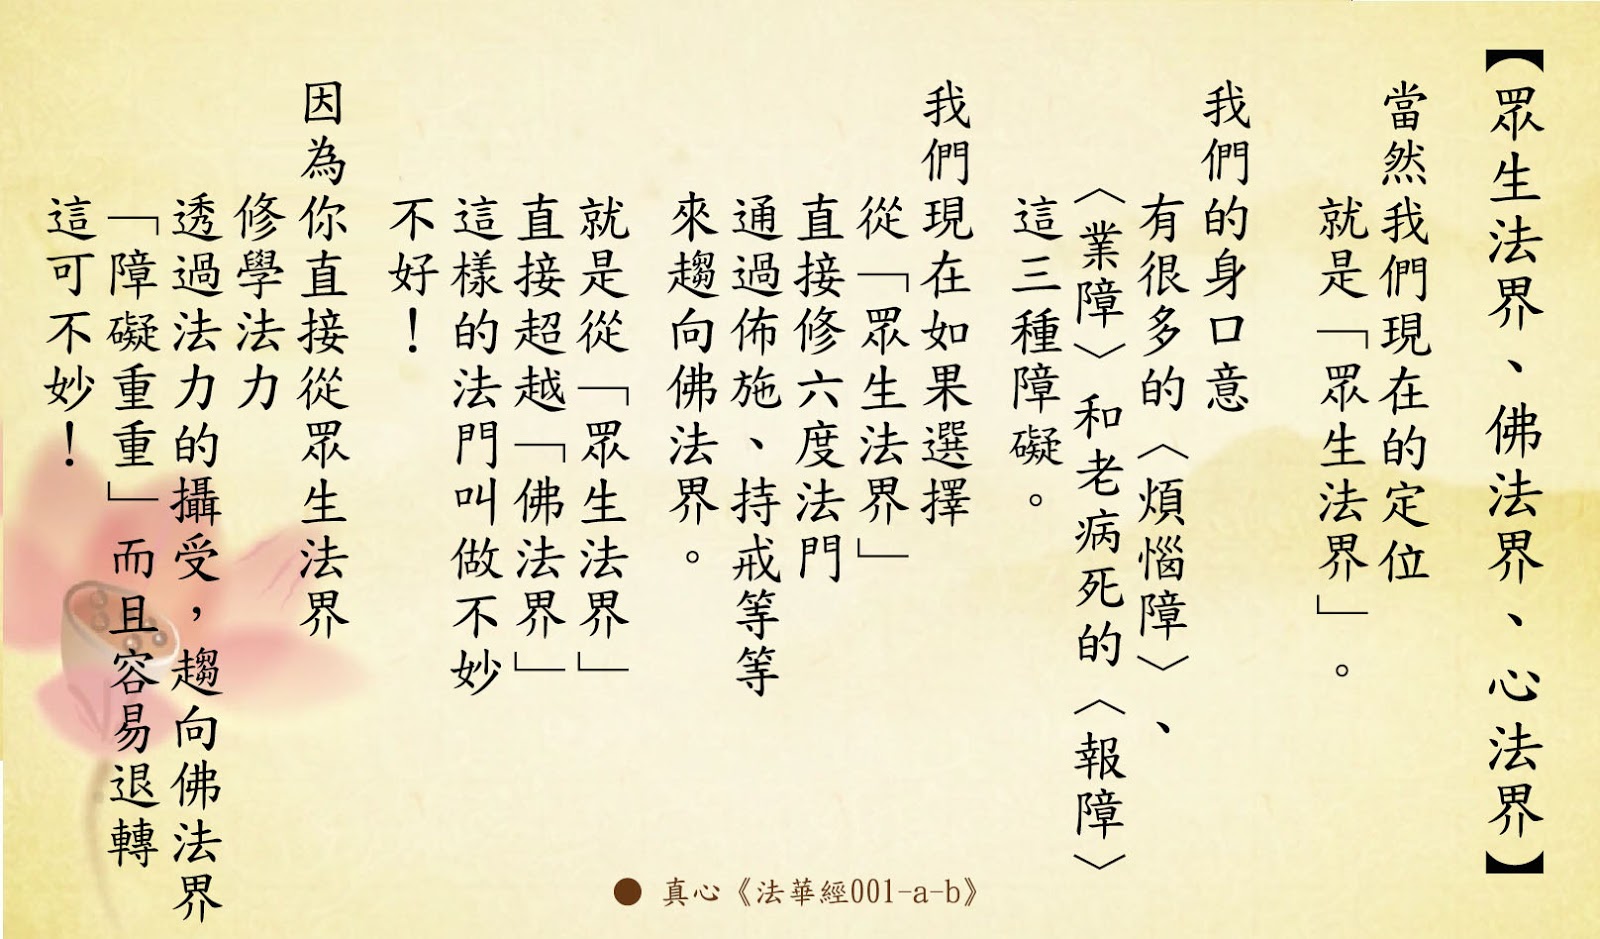 【眾生法界、佛法界、心法界】
當然我們現在的定位
就是「眾生法界」。
我們的身口意
有很多的〈煩惱障〉、
〈業障〉和老病死的〈報障〉
這三種障礙。
我們現在如果選擇
從「眾生法界」
直接修六度法門
通過佈施、持戒等等
來趨向佛法界。
就是從「眾生法界」
直接超越「佛法界」
這樣的法門叫做不妙
不好！
因為你直接從眾生法界
修學法力
透過法力的攝受，趨向佛法界
「障礙重重」而且容易退轉
這可不妙！
● 真心《法華經001-a-b》